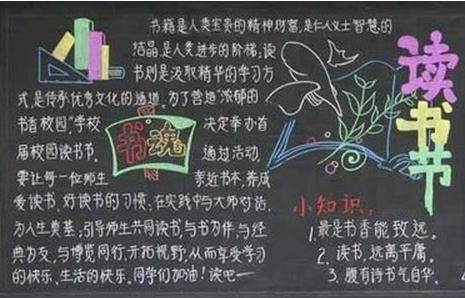 书籍是人类宝贵的精神财富,是仁人义士智慧的
结晶,是人类进步的阶梯;读
书则是汲取精华的学习方
式,是传承优秀文化的通道。为了营造"浓郁的
书香校园"学校决定举办首
届校园读书节。通过活动,
要让每一位师生亲近书本,养成
爱读书、好读书的习惯;在实践中与大师对话,
为人生奠基;引导师生共同读书,与书为伴,与经
典为友,与博览同行,开拓视野,从而享受学习
的快乐、生活的快乐。同学们加油!读吧—
书魂
读书节
小知识:
1.最是书香能致远。
2.读书,远离平庸。
3.腹有诗书气自华。